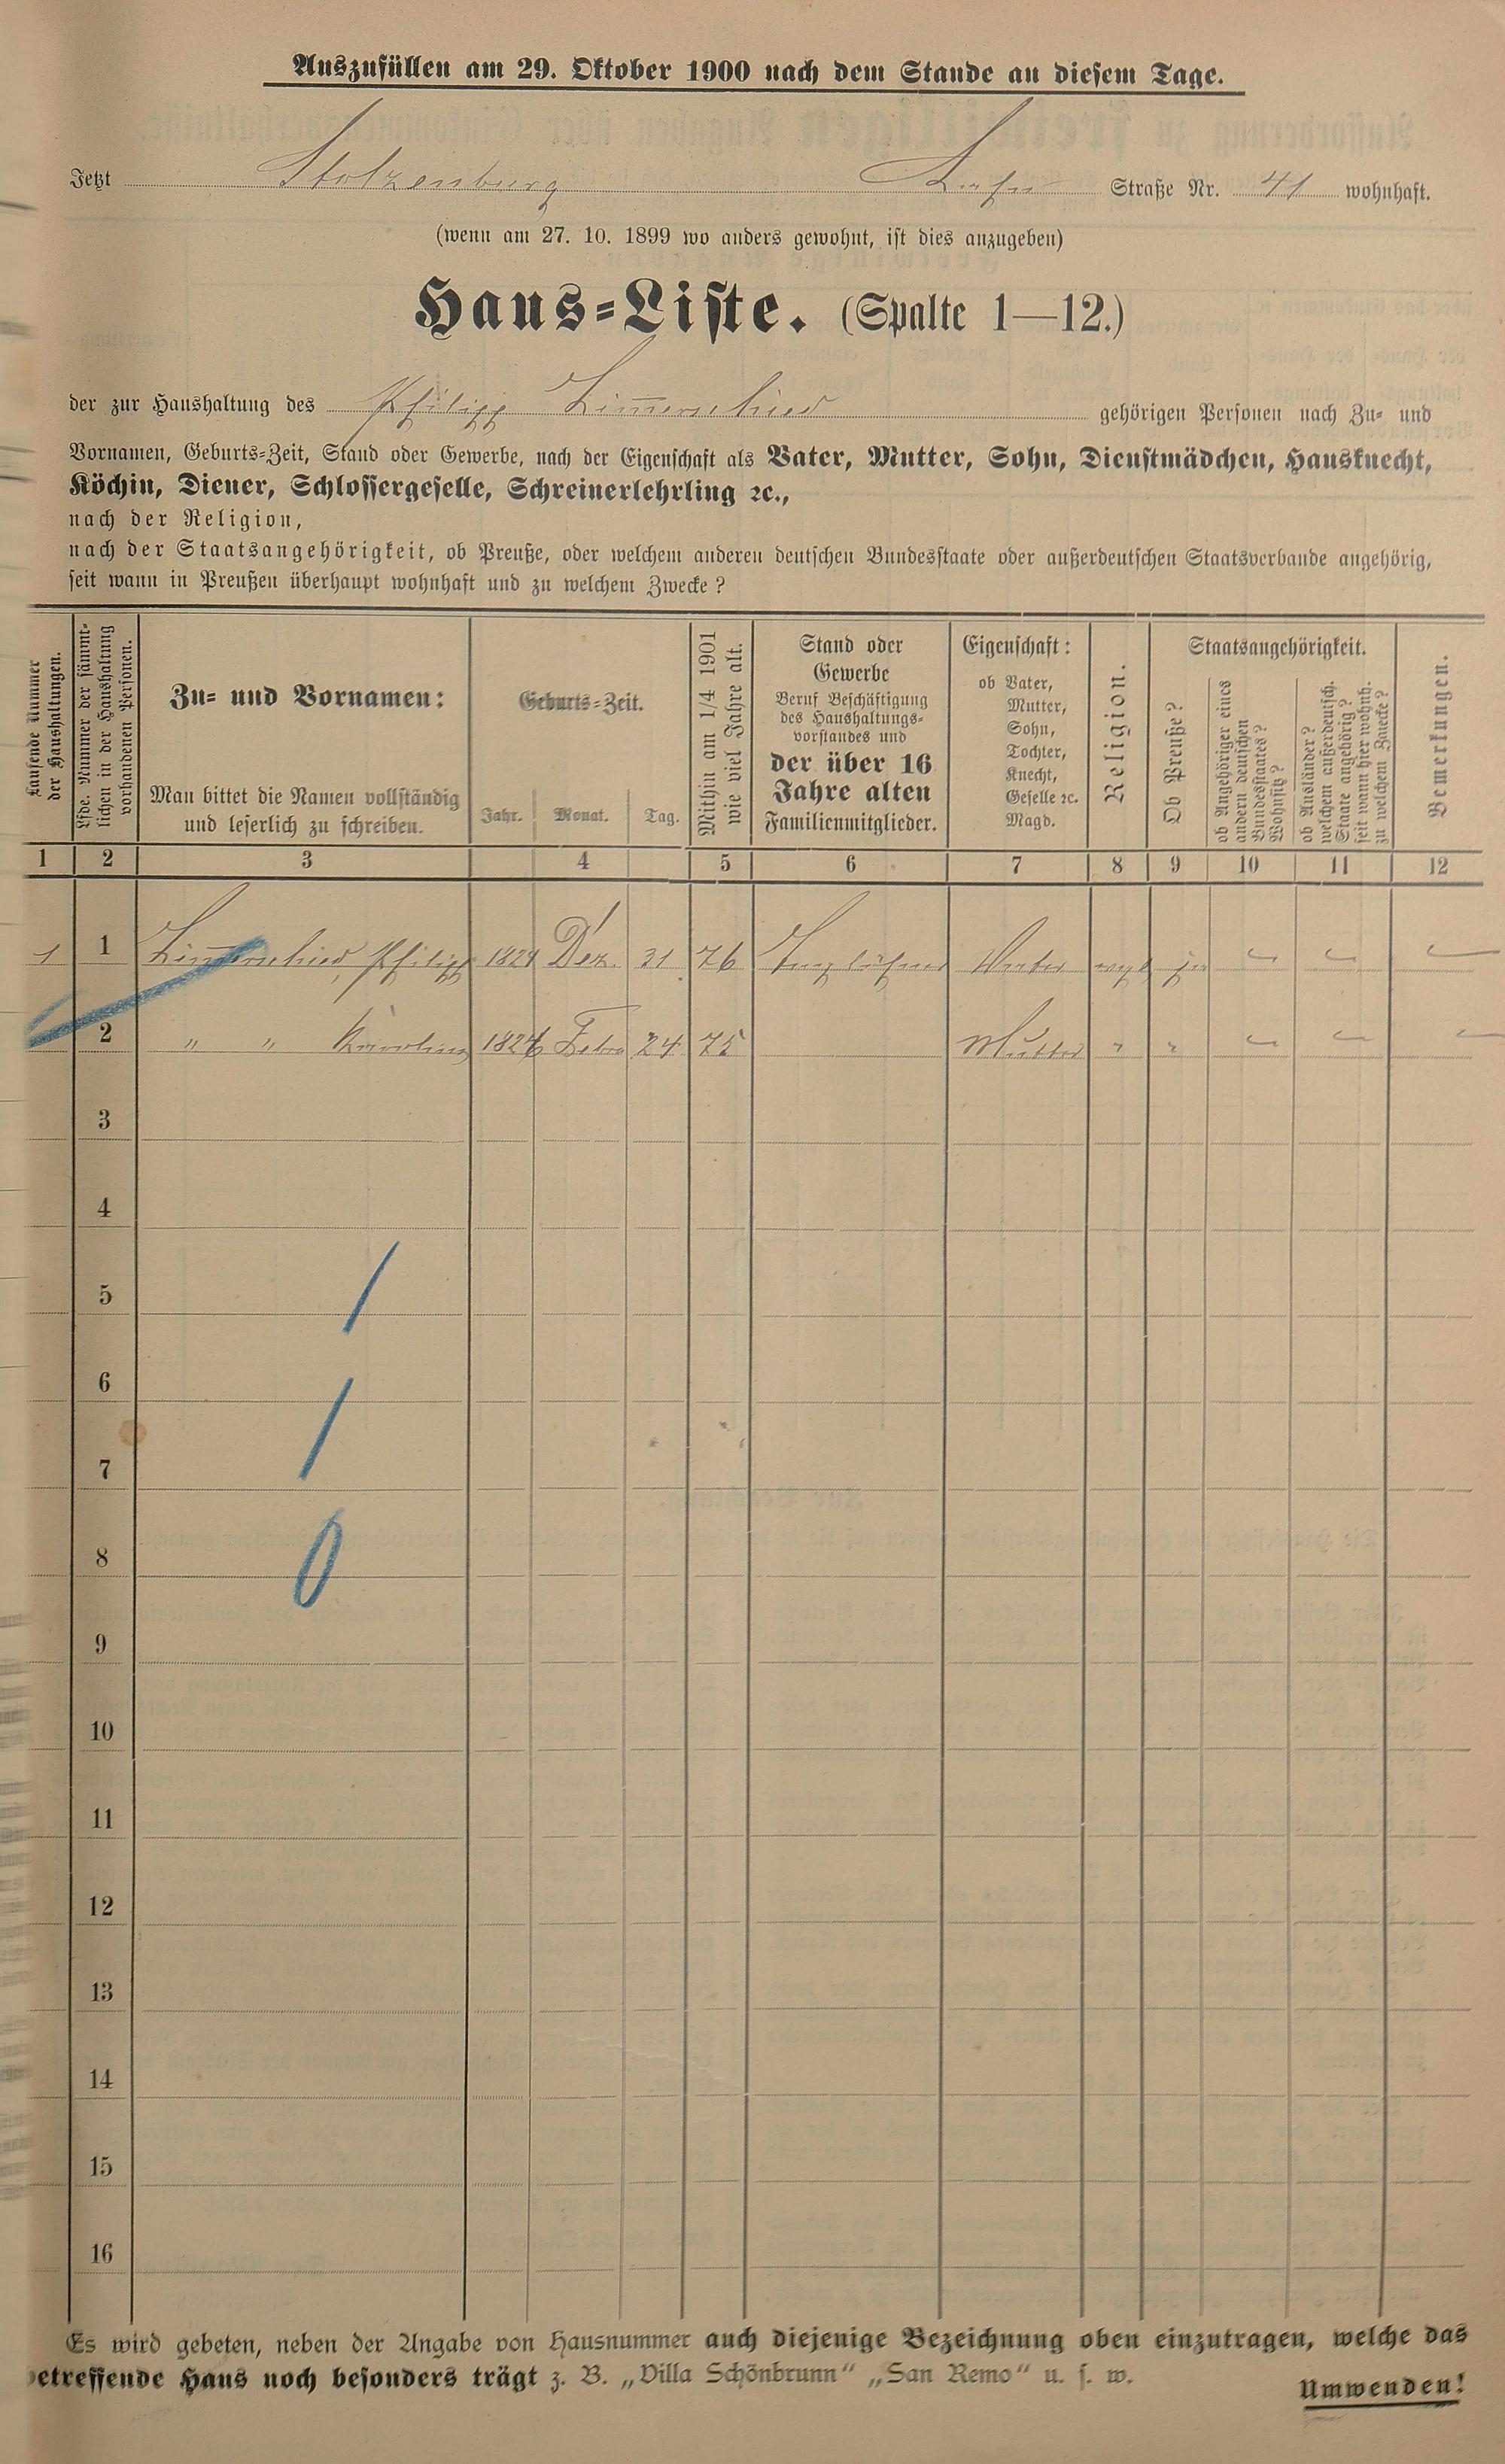 Auszufüllen am 29. Oktober 1900 nach dem Stande an diesem Tage.
Jetzt Stolzenburg Straße Nr. 41 wohnhaft.
(wenn am 27. 10. 1899 wo anders gewohnt, ist dies anzugeben)
Haus-Liste. (Spalte 1—12.)
der zur Haushaltung des Philipp Zimerschied gehörigen Personen nach Zu- und
Vornamen, Geburts-Zeit, Stand oder Gewerbe, nach der Eigenschaft als Vater, Mutter, Sohn, Dienstmädchen, Hausknecht,
Köchin, Diener, Schlossergeselle, Schreinerlehrling ꝛc.,
nach der Religion,
nach der Staatsangehörigkeit, ob Preuße, oder welchem anderen deutschen Bundesstaate oder außerdeutschen Staatsverbande angehörig,
seit wann in Preußen überhaupt wohnhaft und zu welchem Zwecke?
Laufende Nummer
der Haushaltungen.
Lfde. Nummer der sämmt-
lichen in der Haushaltung
vorhandenen Personen.
Zu- und Vornamen:
Man bittet die Namen vollständig
und leserlich zu schreiben.
Geburts-Zeit.
Jahr. Monat. Tag.
Mithin am 1/4 1901
wie viel Jahre alt.
Stand oder
Gewerbe
Beruf Beschäftigung
des Haushaltungs-
vorstandes und
der über 16
Jahre alten
Familienmitglieder.
Eigenschaft:
ob Vater,
Mutter,
Sohn,
Tochter,
Knecht,
Geselle ꝛc.
Magd.
Religion.
Staatsangehörigkeit.
Ob Preuße?
ob Angehöriger eines
andern deutschen
Bundesstaates?
Wohnsitz?
ob Ausländer?
welchem außerdeutsch.
Staate angehörig?
seit wann hier wohnh.
zu welchem Zwecke?
Bemerkungen.
1 2 3 4 5 6 7 8 9 10 11 12
1 1 Zimerschied, Philipp 1824 Dez. 31 76 Taglöhner Vater evgl ja
2 " " Karoline 1826 Febr 24 75 Mutter " "
3
4
5
6
7
8
9
10
11
12
13
14
15
16
Es wird gebeten, neben der Angabe von Hausnummer auch diejenige Bezeichnung oben einzutragen, welche das
betreffende Haus noch besonders trägt z. B. „Villa Schönbrunn“ „San Remo“ u. s. w.
Umwenden!